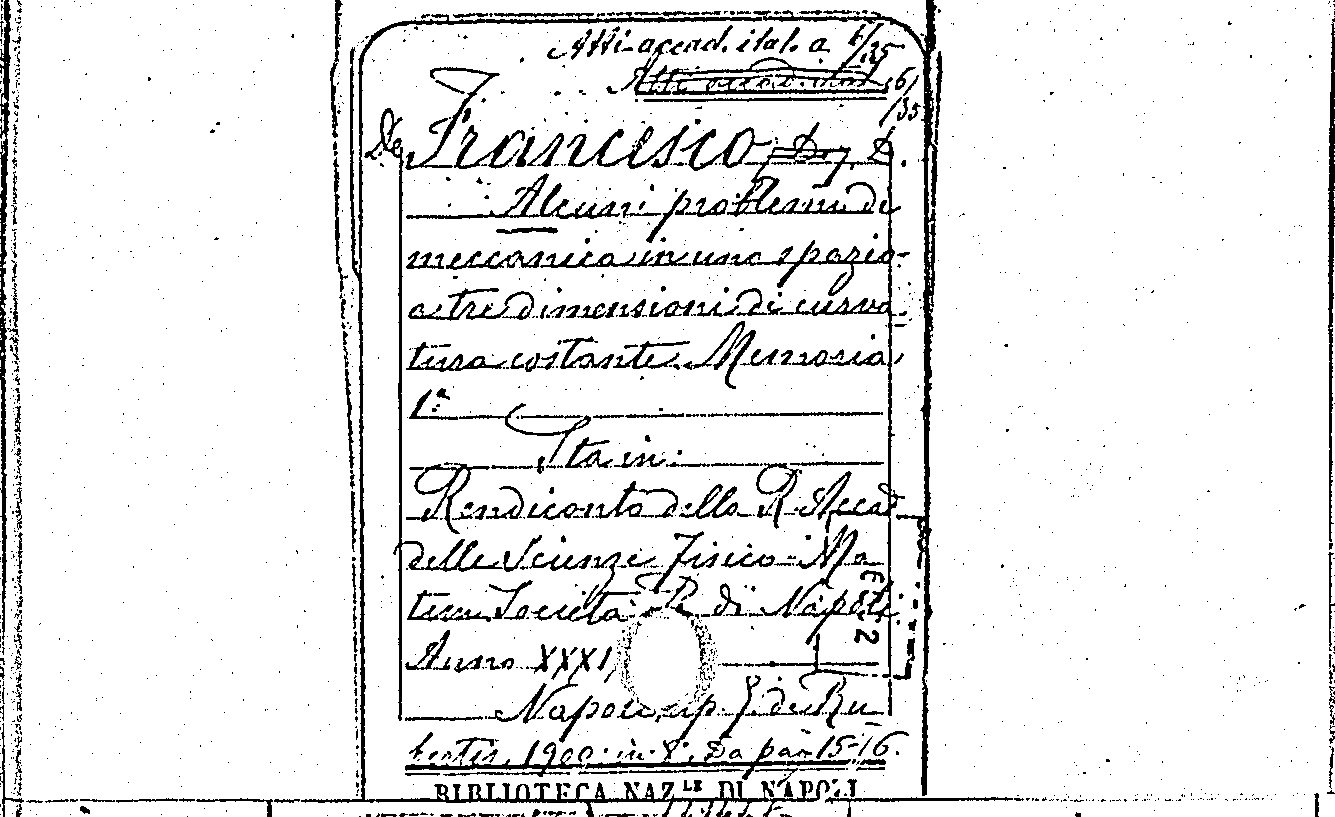 Atti accad. ital. a 6/35
Atti accad. 6/35
De Francesco, D.
Alcuni problemi di
meccanica in uno spazio
a tre dimensioni di curva-
tura costante. Memoria
1ª
Sta in:
Rendiconto della R. Accad
delle Scienze Fisico-Ma
tem. Società R. di Napoli
Anno XXXI
Napoli, tip. E. de Ru
bertis, 1900. in 8°. Da pag 15-16.
BIBLIOTECA NAZ.LE DI NAPOLI